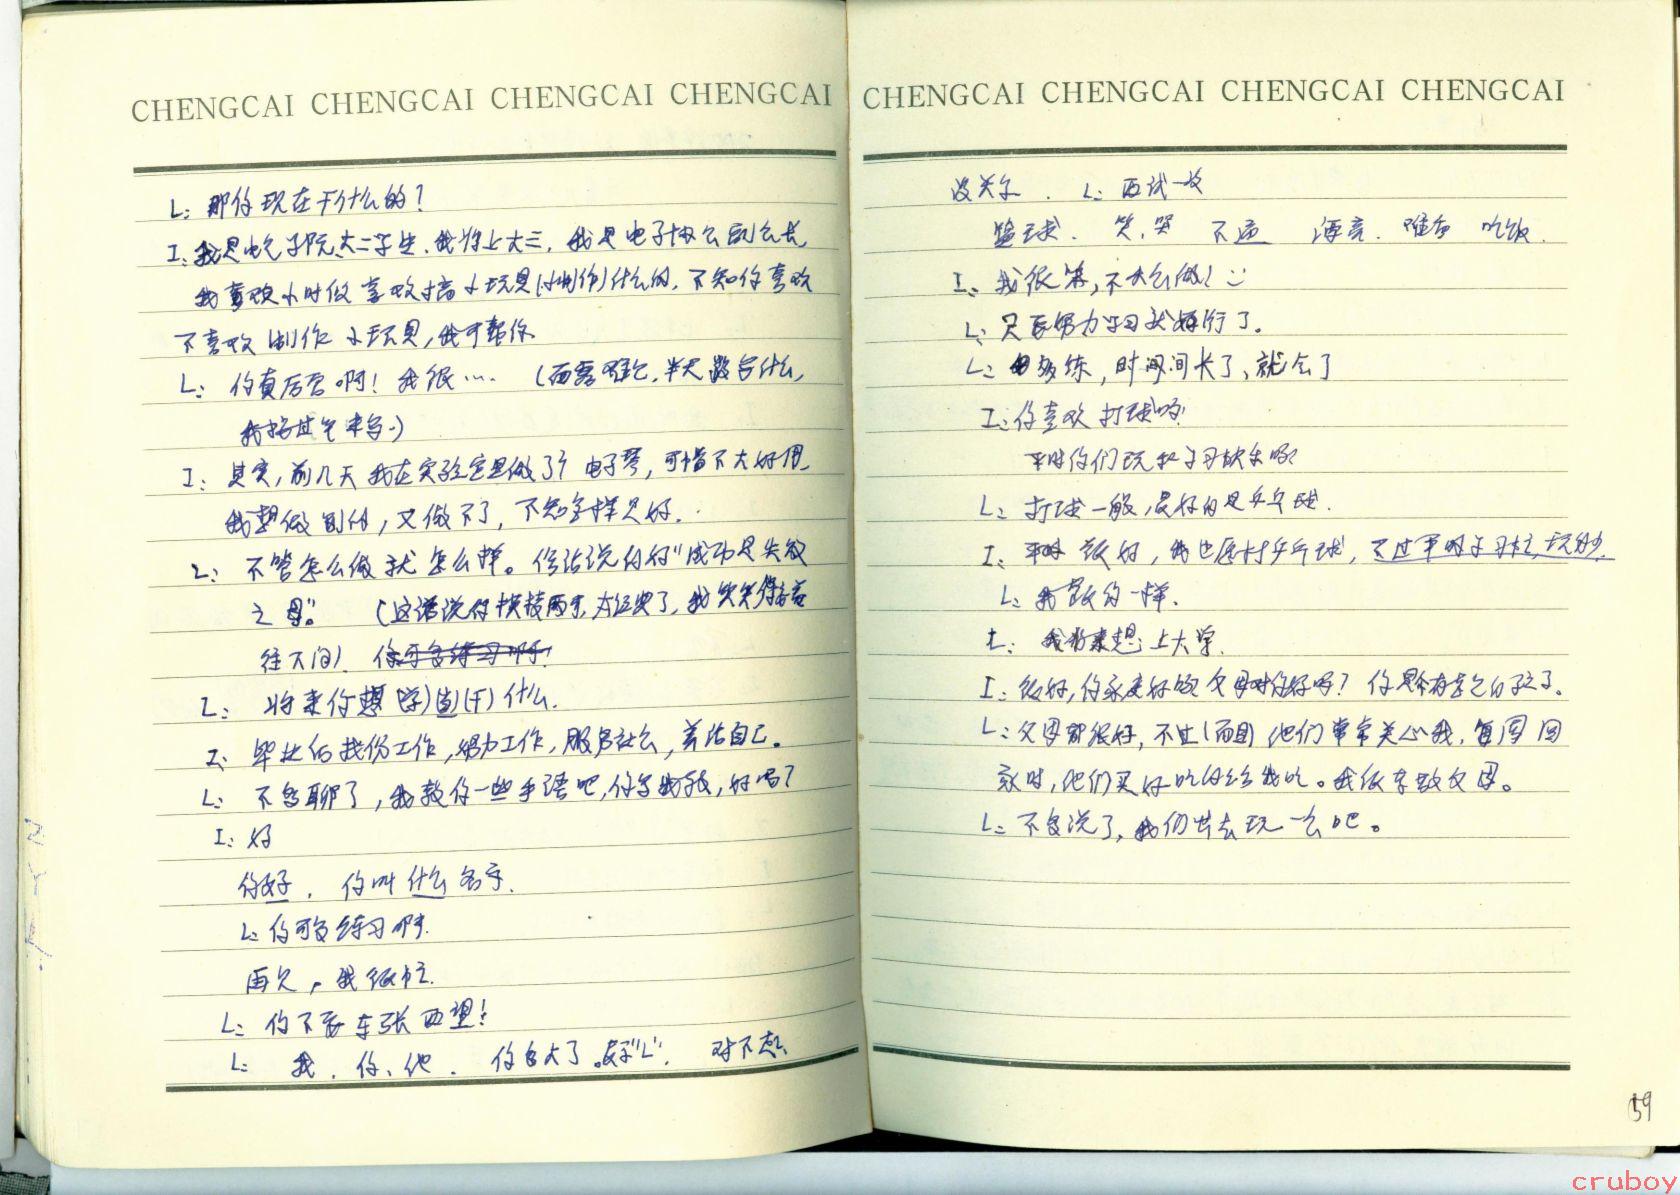 CHENGCAI CHENGCAI CHENGCAI CHENGCAI
L: 那你现在干什么的?
I: 我是电气学院大二学生,我将上大三,我是电子协会副会长
我喜欢小时候喜欢搞小玩具(制作)什么的,不知你喜欢
不喜欢制作小玩具,我可帮你
L: 你真厉害啊! 我很… (面露难色,半天
我接过笔来写)
I: 其实,前几天我在实验室里做了个电子琴,可惜不大好用
我想做别的,又做不了,不知怎样是好.
L: 不管怎么做就怎么样。俗话说的好"成功是失败
之母"。 (这话说得
你可多练习啊!
I: 将来你想(学)(干)什么.
I: 毕业后找份工作,努力工作,服务社会,养活自己。
L: 不多聊了,我教你一些手语吧,你学我教,好吗?
I: 好
你好, 你叫什么名字.
L: 你可多练习啊.
再见, 我很忙.
L: 你不要东张西望!
L: 我, 你, 他. 你多大了。 "L". 对不起.
CHENGCAI CHENGCAI CHENGCAI CHENGCAI
没关系. L: 面试一次
篮球. 笑,哭 不 漂亮. 难看 吃饭.
I: 我很笨,不太会做!
L: 只要努力学习就好行了.
L: 多练,时间长了,就会了
I: 你喜欢打球吗?
平时你们玩和学习快乐吗?
L: 打球一般,最好的是乒乓球.
I: 很好,我也医打乒乓球,不过平时学习忙,玩的少.
L: 我跟你一样.
L: 我将来想上大学.
I: 很好,你家庭好吗?父母对你好吗? 你是个有志气的孩子.
L: 父母都很好,不过(而且)他们常常关心我,每周回
家时,他们买好吃的给我吃。我很孝敬父母。
L: 不多说了,我们出去玩一会吧。
59
cruboy